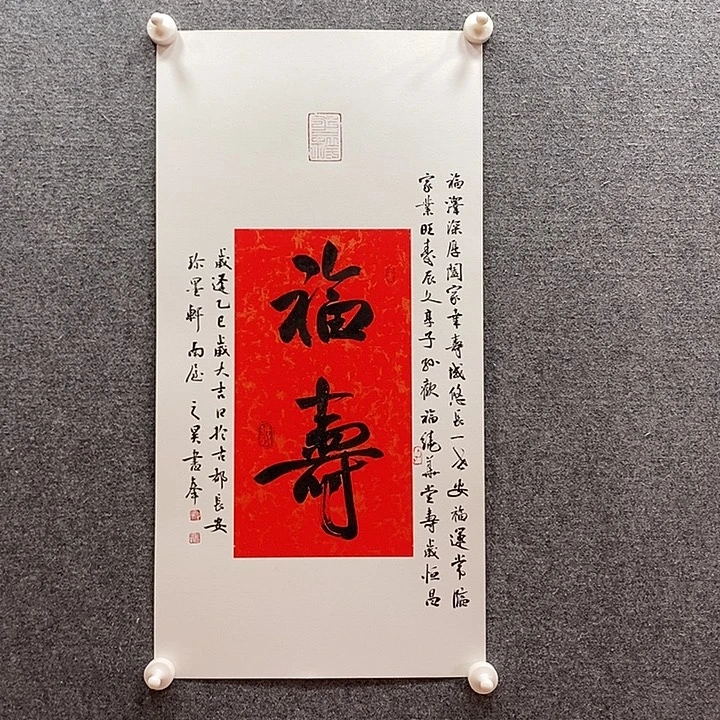 福澤深厚闔家幸壽歲悠長一世安福運常臨
家業旺壽辰久享子孙歡福繞華堂壽歲恒昌
福壽
歲逢乙巳歲大吉日於古都長安
珍墨軒南之昊書奉